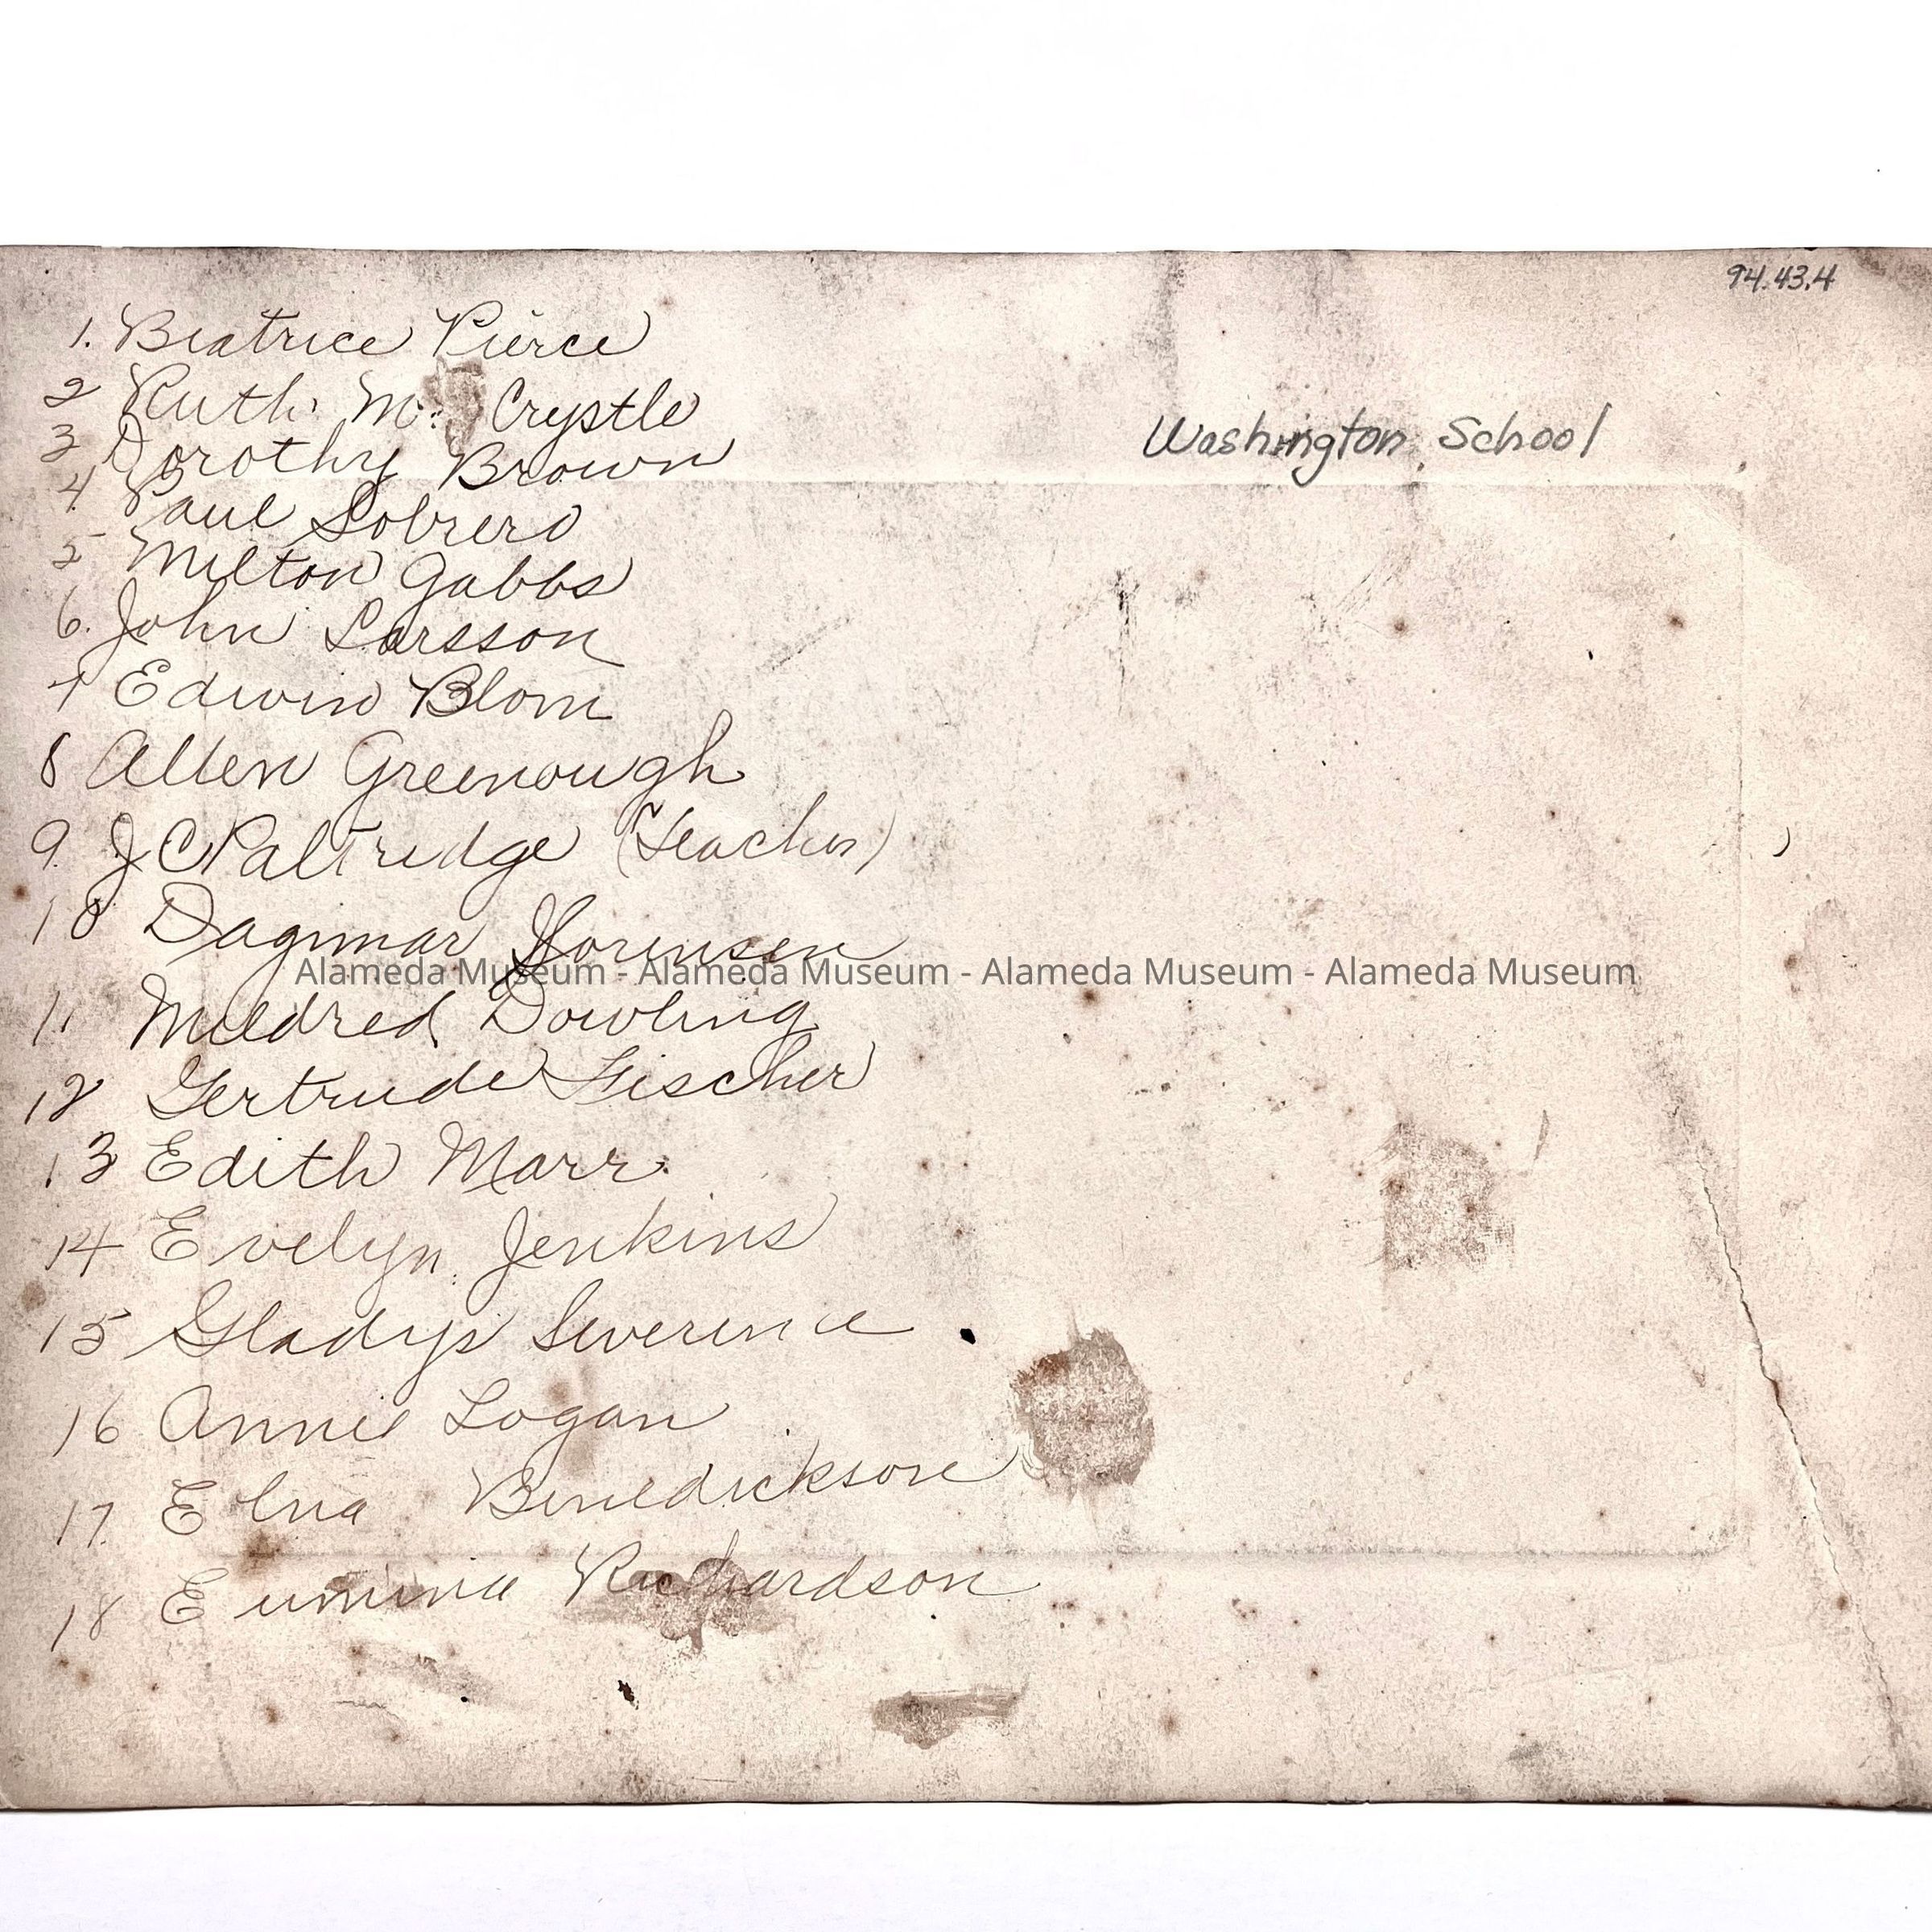 94.43.4
Washington School
1. Beatrice Pierce
2 Ruth Mc Crystle
3 Dorothy Brown
4. Paul Sobrero
5 Milton Gabbs
6. John Larsson
7 Edwin Blom
8 Allen Greenough
9. J C Paltridge (Teacher)
10 Dagmar Sorensen
Alameda Museum - Alameda Museum - Alameda Museum - Alameda Museum
11 Mildred Dowling
12 Gertrude Fischer
13 Edith Marr
14 Evelyn Jenkins
15 Gladys Severence
16 Annie Logan
17. Elna Benedickson
18 Emma Richardson